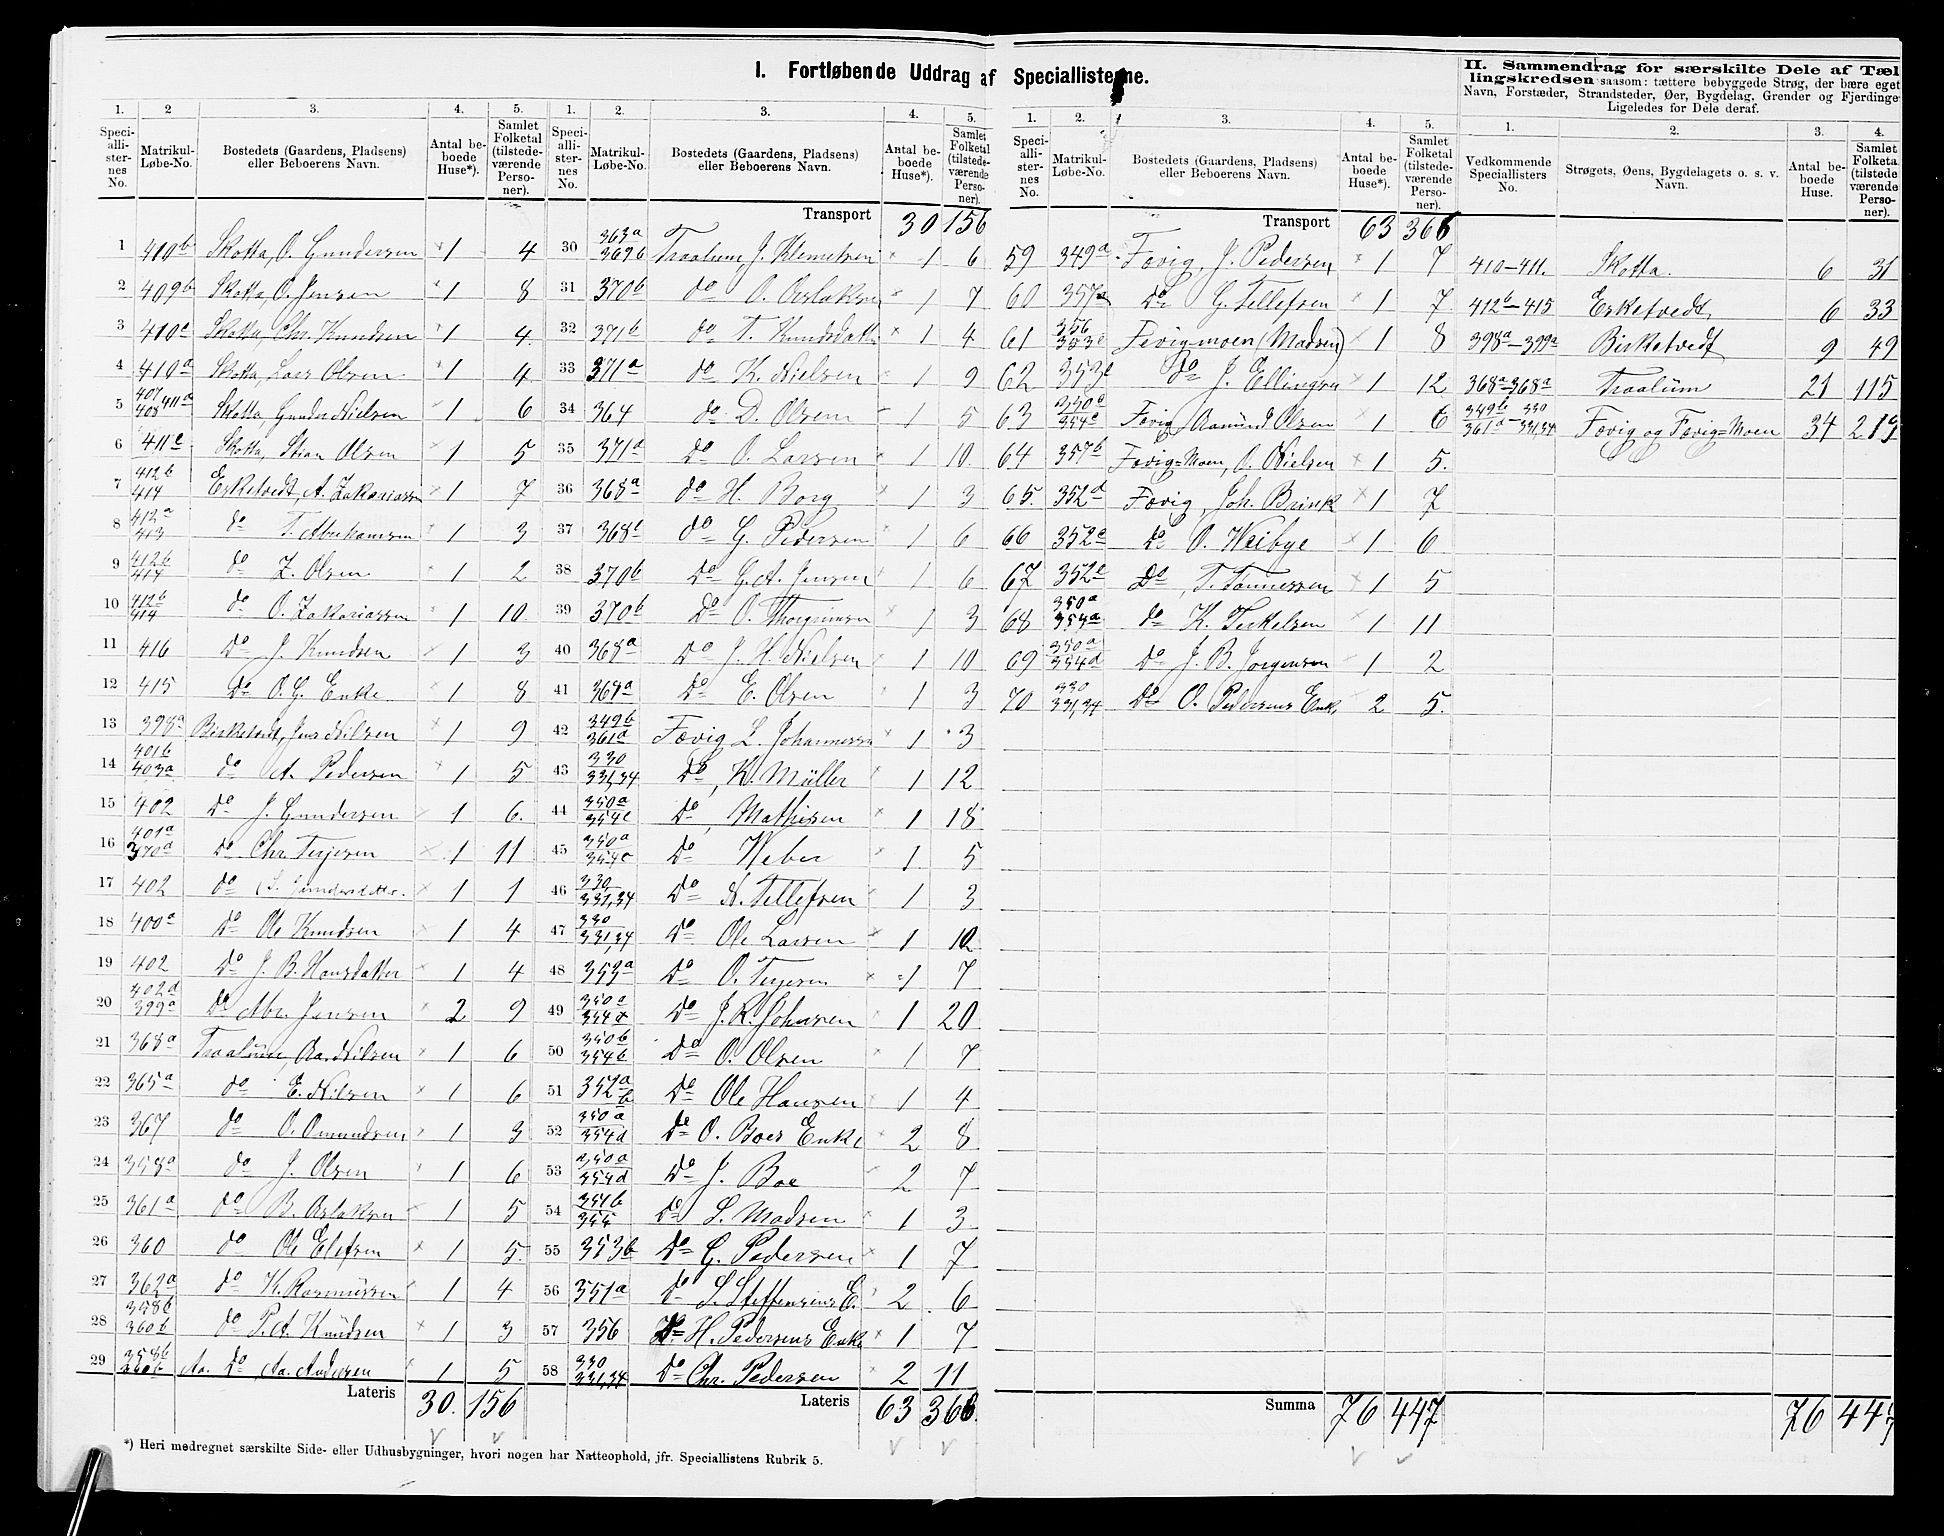 I. Fortløbende Uddrag af Speciallisterne.
II. Sammendrag for særskilte Dele af Tæl
lingskredsen saasom: tættere bebyggede Strøg, der bære eget
Navn, Forstæder, Strandsteder, Øer, Bygdelag, Grender og Fjerdinge
Ligeledes for Dele deraf.
1. 2 3. 4. 5. 1. 2. 3. 4. 5. 1. 2. 3. 4. 5. 1. 2. 3. 4.
Speci-alli-ster-nes No. Matrikul-Løbe-No. Bostedets (Gaardens, Pladsens) eller Beboerens Navn. Antal be-boede Huse*). Samlet Folketal (tilstede-værende Perso-ner).
Speci-alli-ster-nes No. Matrikul-Løbe-No. Bostedets (Gaardens, Pladsens) eller Beboerens Navn. Antal be-boede Huse*). Samlet Folketal (tilstede-værende Perso-ner).
Speci-alli-ster-nes No. Matrikul-Løbe-No. Bostedets (Gaardens, Pladsens) eller Beboerens Navn. Antal be-boede Huse*). Samlet Folketal (tilstede-værende Perso-ner).
Vedkommende Speciallisters No. Strøgets, Øens, Bygdelagets o. s. v. Navn. Antal be-boede Huse. Samlet Folketa (tilstede værende Perso-ner).
1 410b Skotta, O. Gundersen 1 4
2 409b Skotta, O. Jensen 1 8
3 410c Skotta, Chr. Knudsen 1 4
4 410a Skotta, Lars Olsen 1 4
5 407 408 411a Skotta, Gunder Nielsen 1 6
6 411c Skotta, Stian Olsen 1 5
7 412b 414 Esketvedt, A. Zakariassen 1 7
8 412a 413 do T. Abrahamsen 1 3
9 412b 414 do Z. Olsen 1 2
10 412b 414 do O. Zakariassen 1 10
11 416 Do J. Knudsen 1 3
12 415 Do O. G. Enke 1 8
13 398a Birketvedt, Jens Nilsen 1 9
14 401b 403a do A. Pedersen 1 5
15 402 Do J. Gundersen 1 6.
16 401a 370d do Chr. Terjesen 1 11
17 402 do 1 1
18 400a Do Ole Knudsen 1 4
19 402 Do J. B. Hansdatter 1 4
20 402d 399a Do Abr. Jensen 2 9
21 368a Traalum, Aa. Nilsen 1 6
22 365a do E. Nilsen 1 6
23 367 do O. Omundsen 1 3
24 358a do J. Olsen 1 6
25 361a do B. Aslaksen 1 5
26 360 do Ole Elefsen 1 5.
27 362a do K. Rasmüssen 1 4
28 358b 360b do P. A. Knüdsen 1 3
29 358b 360b Aa. Do Aa. Andersen 1 5
Lateris 30. 156
Transport 30 156
30 363a 369b Traalum, J. Klemetsen 1 6
31 370b do O. Aslaksen 1 7
32 371b do T. Knudsdatter 1 4
33 371a do K. Nielsen 1 9
34 364 do D. Olsen 1 5
35 371a Do O. Larsen 1 10.
36 368a do H. Borg 1 3
37 368c do G. Pedersen 1 6
38 370b Do G. A. Jensen 1 6
39 370b Do O. Thorgrimsen 1 3
40 368a Do J. H. Nielsen 1 10
41 368a Do E. Olsen 1 3
42 349b 361a Fævig L. Johannessen 1 3
43 330 331,34 Do, K. Müller 1 12
44 350a 354c Do, Mathisen 1 18
45 350a 354c Do Weber 1 5
46 330 331,34 Do N. Tellefsen 1 3
47 330 331,34 Do Ole Larsen 1 10
48 353a Do O. Terjesen 1 7
49 350a 354 Do J. R. Johnsen 1 20
50 350b 354b Do O. Olsen 1 7
51 352a b Do Ole Hansen 1 4
52 350a 354d Do O. Boes Enke 2 8
53 350a 354d Do J. Boe 2 7
54 351b 355 Do S. Madsen 1 3
55 353b Do G. Pedersen 1 7
56 351a do S. Steffensens E. 2 6
57 356 Do H. Pedersens Enke 1 7
58 330 331,34 Do Chr. Pedersen 2 11
Lateris 63 366.
Transport 63 366
59 349a Fævig, J. Pedersen 1 7
60 357a Do G. Tellefsen 1 7
61 356 353c Fevigmoen (Madsen) 1 8
62 353c do J. Ellingsen 1 12
63 350c 354c Fævig Aamund Olsen 1 6
64 357b Fævig=Moen, O. Nielsen 1 5.
65. 352d Fævig, Joh. Brinck 1 7
66 352c Do O. Weibye 1 6
67 352c Do, T. Tønnessen 1 5
68 350a 353a do K. Terkelsen 1 11
69 350a 354d do J. B. Jørgensen 1 2
70 330 331,34 Do O. Pedersens Enk. 2 5.
Summa 76 447
410-411. Skotta. 6 31
412b-415 Esketvedt, 6 33
398a-399a Birketvedt 9 49
368a-368a Traalüm 21 115
349b-330 361a-331,34 Fævig og Fævig=Moen 34 219
76 447
*) Heri medregnet særskilte Side- eller Udhusbygninger, hvori nogen har Natteophold, jfr. Speciallistens Rubrik 5.